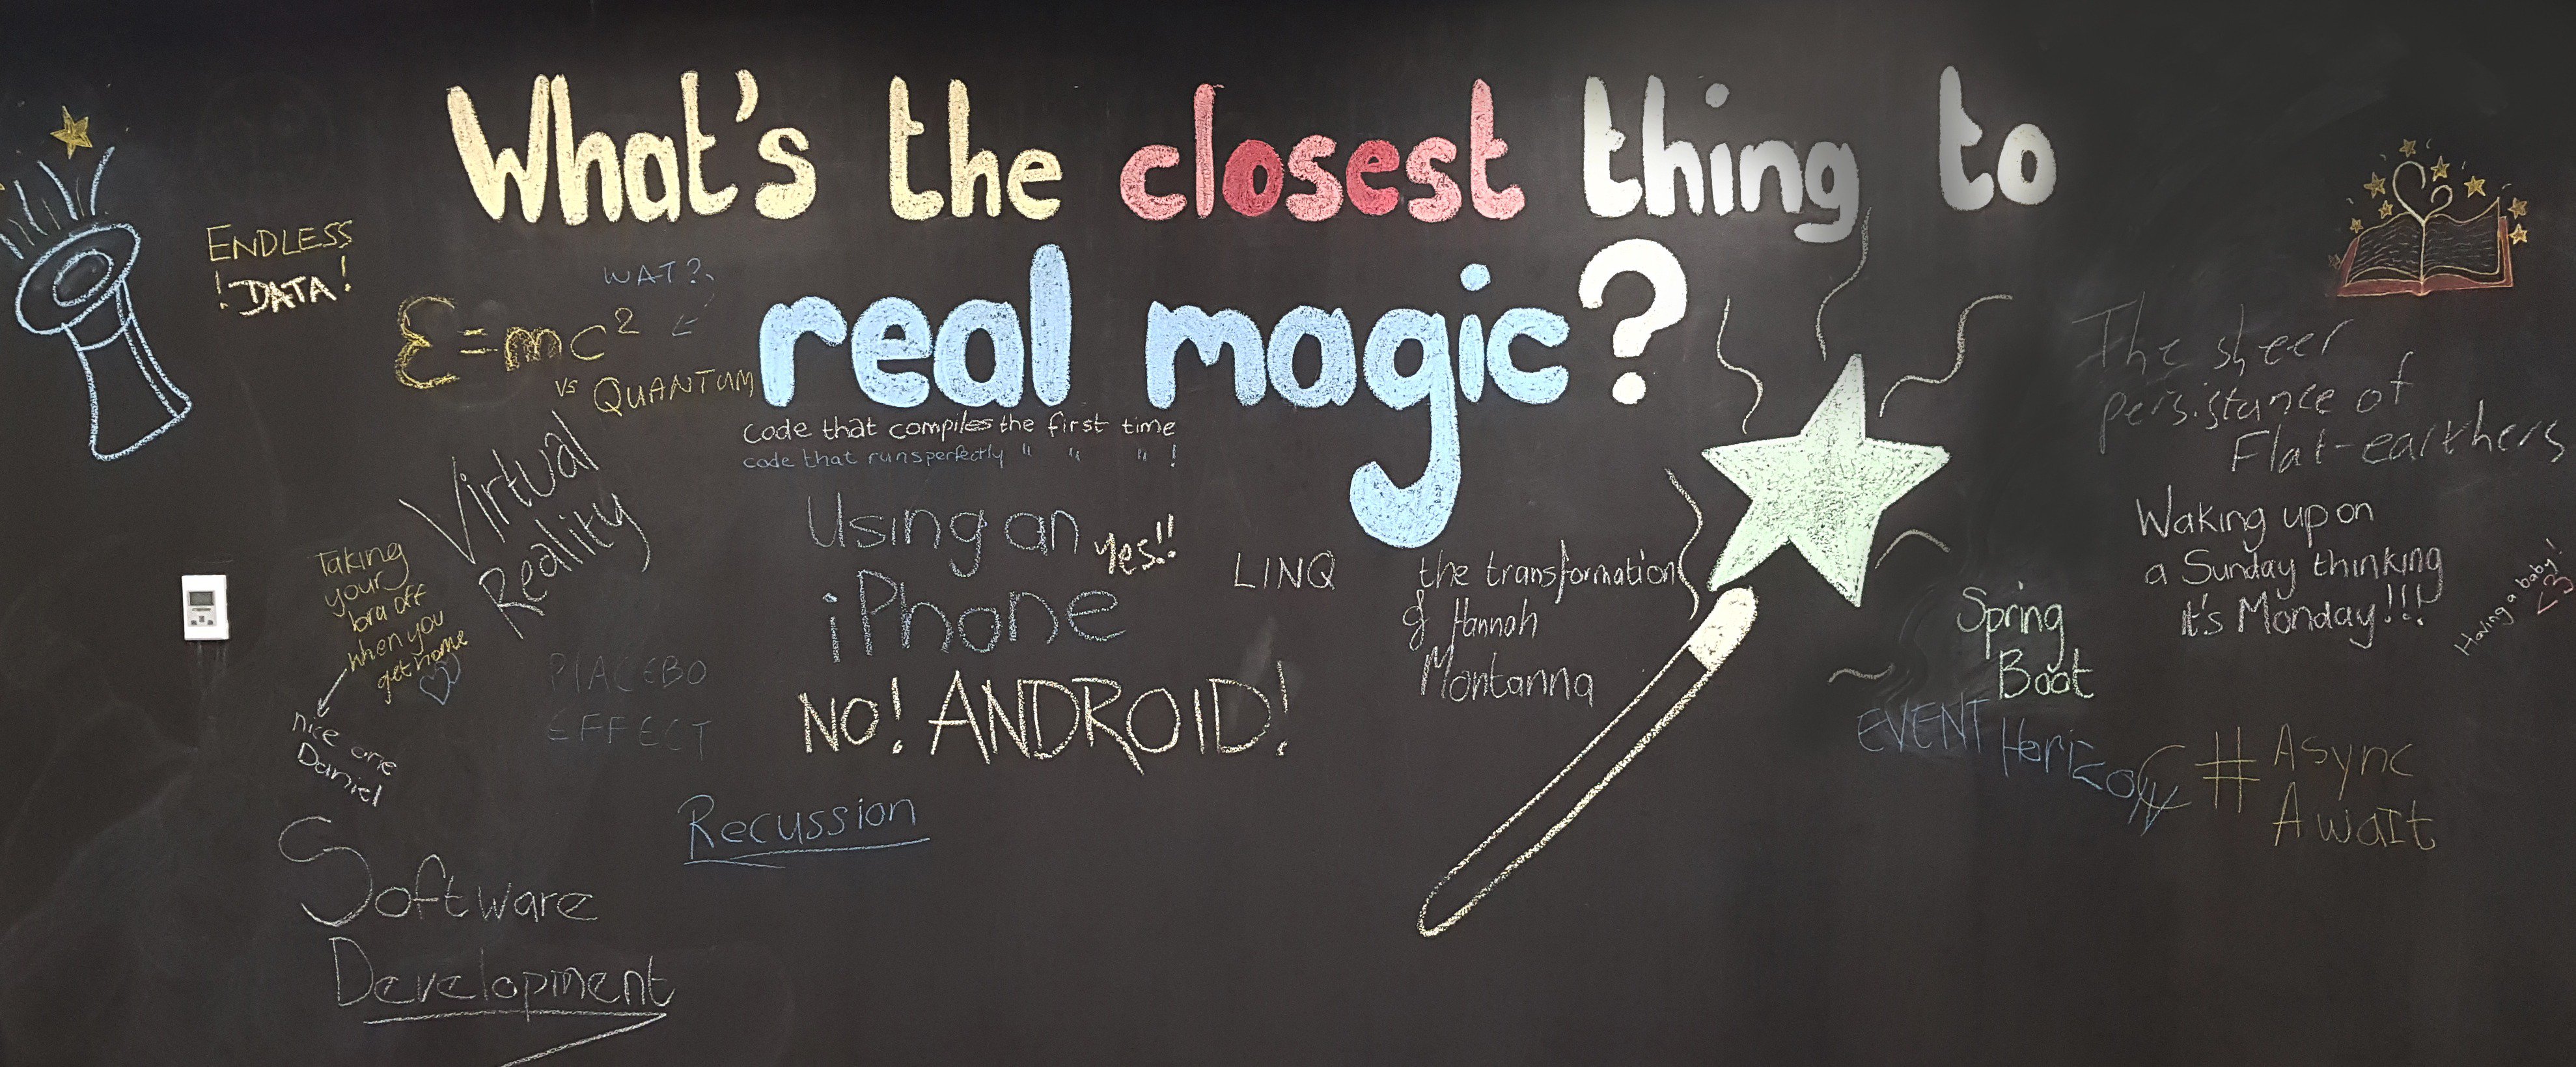 What's the closest thing to
real magic?
ENDLESS
!DATA!
WAT?
E=mc²
vs QUANTUM
code that compiles the first time
code that runs perfectly " " " !
Virtual
Reality
Taking
your
bra off
when you
get home
nice one
Daniel
PLACEBO
EFFECT
Using an
iPhone
Yes!!
NO! ANDROID!
Recussion
Software
Development
LINQ
the transformation
of Hannah
Montanna
The sheer
persistance of
Flat-earthers
Waking up on
a Sunday thinking
it's Monday!!!
Having a baby!
<3
Spring
Boot
EVENT Horizon
#Async
Await